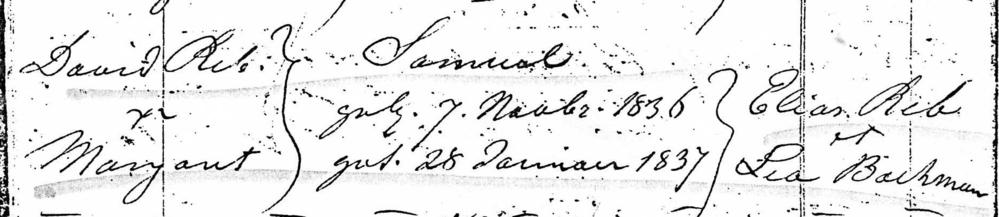 David Reb.
&
Margaret
Samuel
geb. 7. Novbr. 1836
get. 28 Januar 1837
Elias Reb
et
Lea Bachman